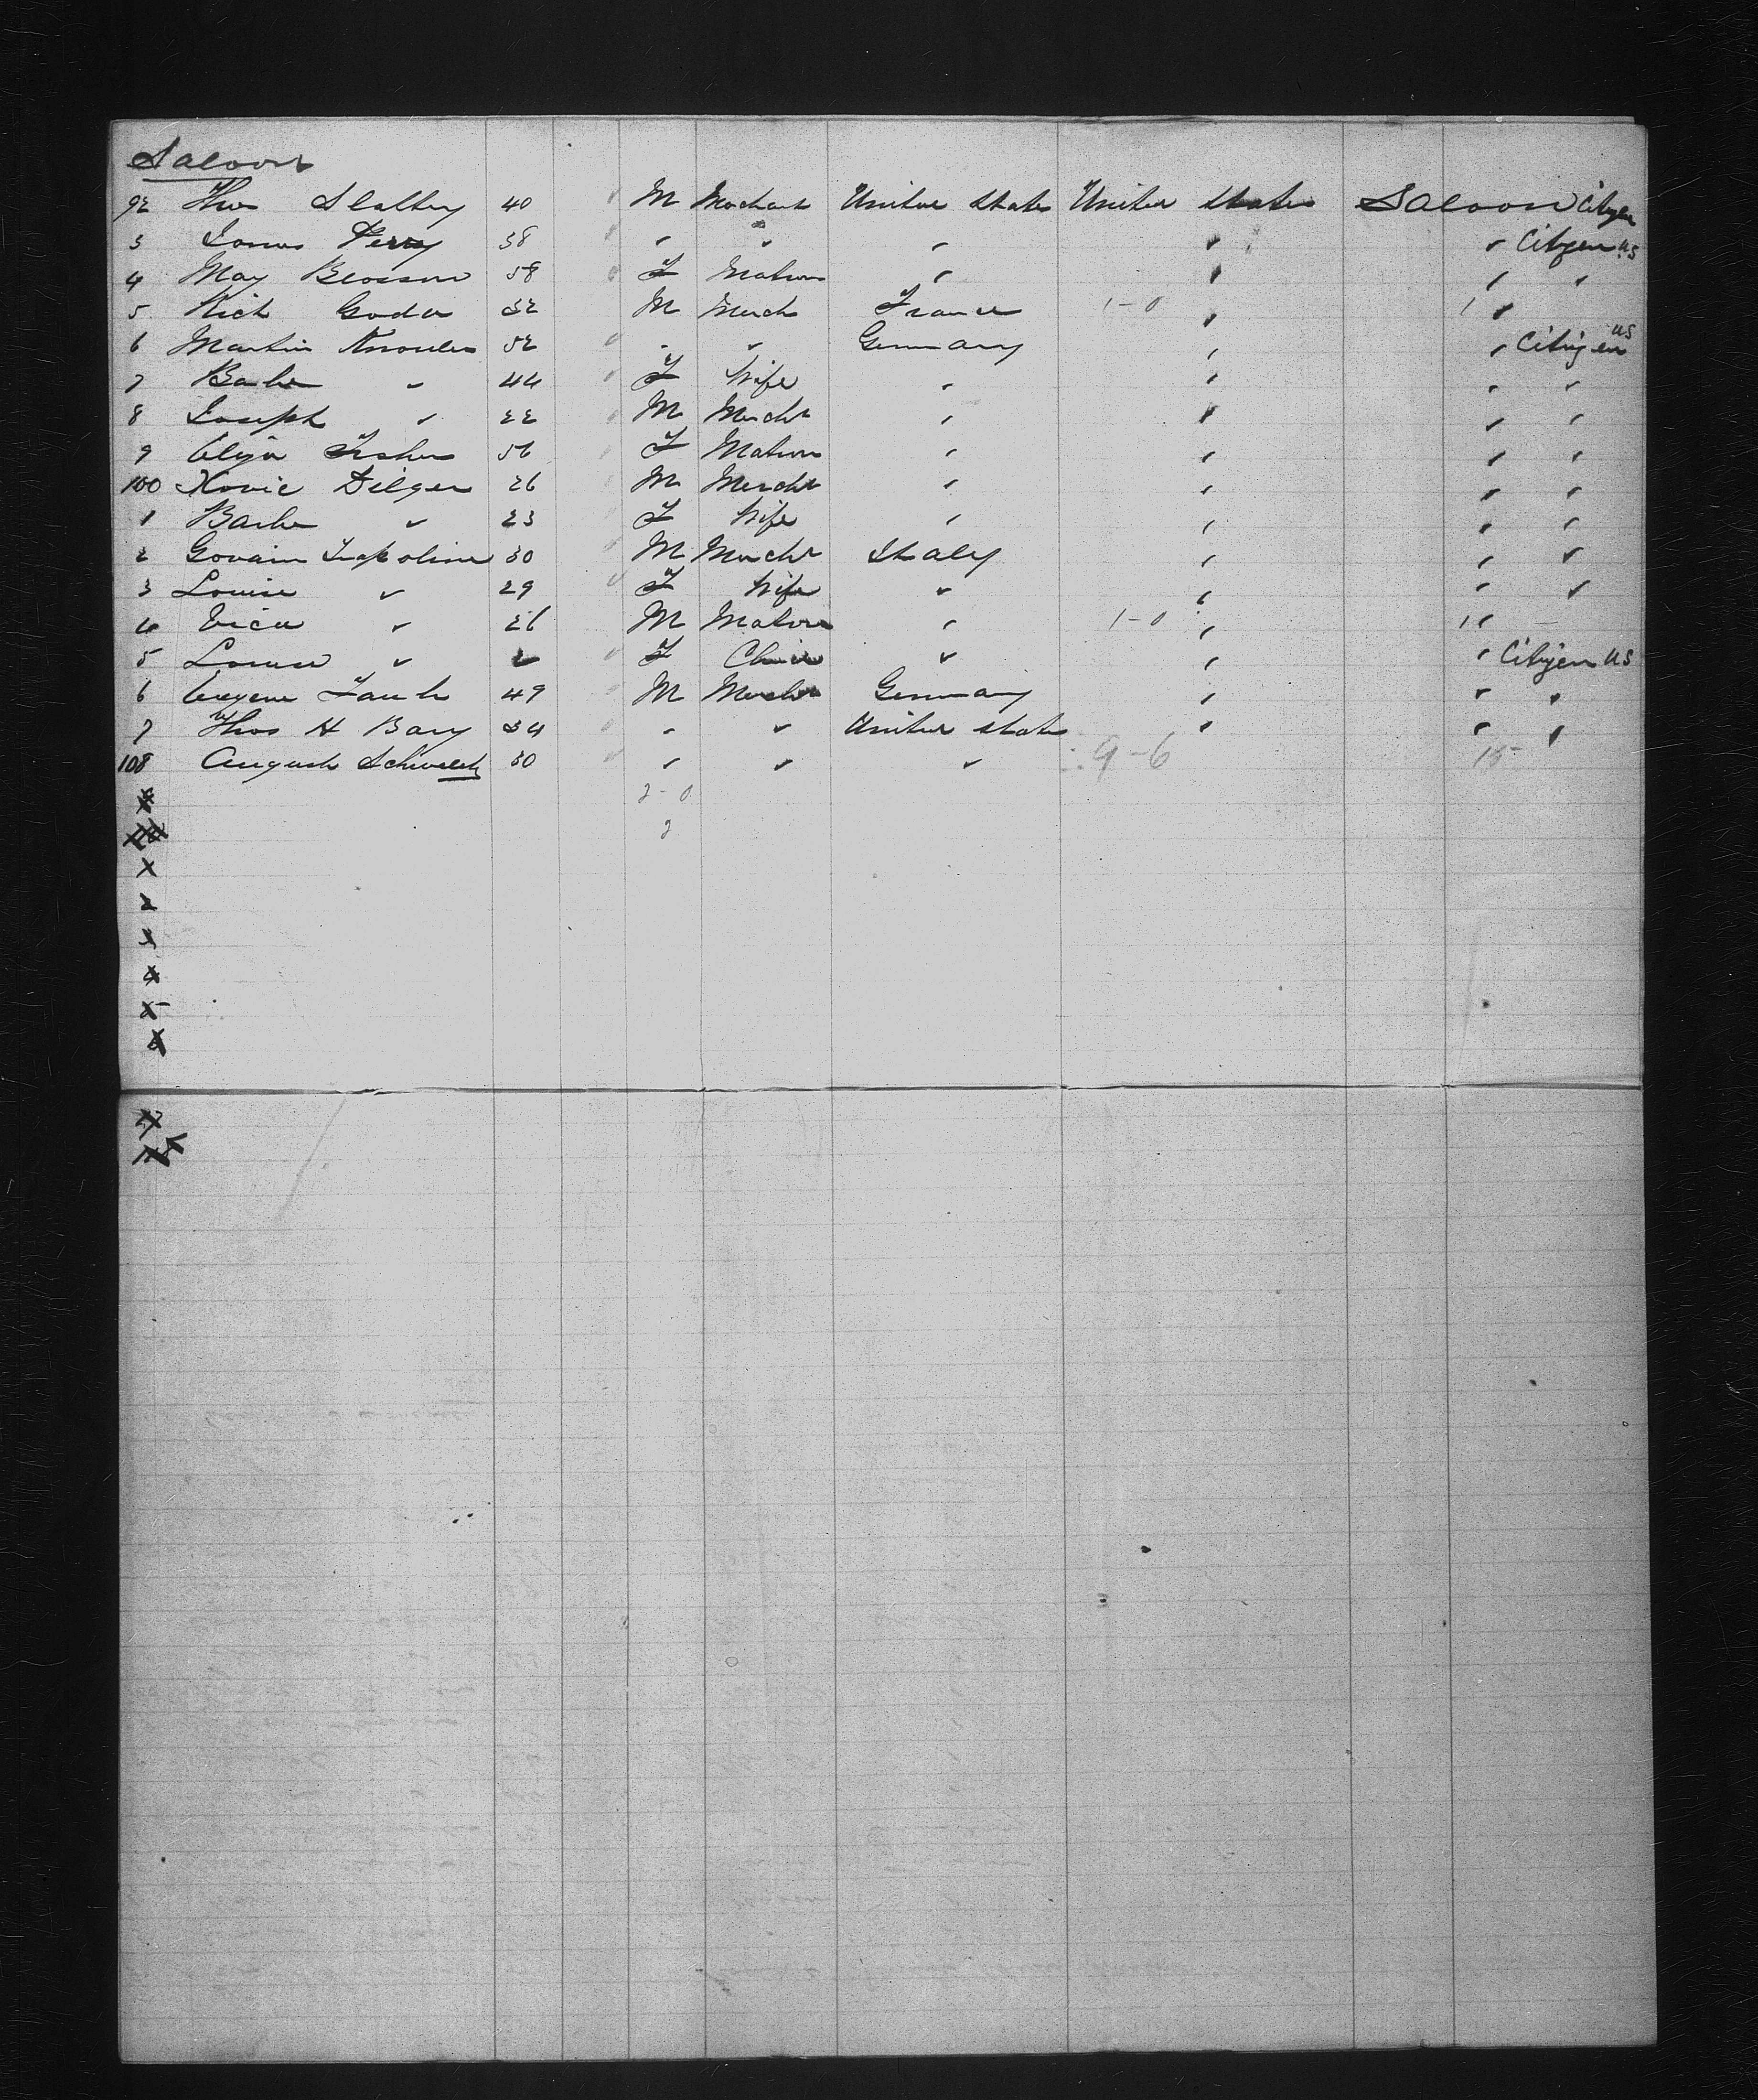 Saloon
92 Thos Slattery 40 M Merchant United States United States Saloon Citizen
3 Perry 38 " " " " " Citizen US
4 May Blossom 58 F Matron " " " "
5 Rich 32 M Merch France 1-0 " 1 "
6 Martin Knowles 52 " " Germany " " Citizen US
7 Barbe " 44 F Wife " " " "
8 Joseph " 22 M Mercht " " " "
9 Fisher 56 F Matron " " " "
100 Dilger 26 M Mercht " " " "
1 Barbe " 23 F Wife " " " "
2 30 M Mercht Italy " " "
3 Louise " 29 F Wife " " " "
4 " 26 M Matron " 1-0 " 1 "
5 Louise " 2 F Child " " " Citizen US
6 Eugene 49 M Mercht Germany " " "
7 Thos H Bary 34 " " United States " " "
108 August 30 " " " 9-6 15
2-0
2